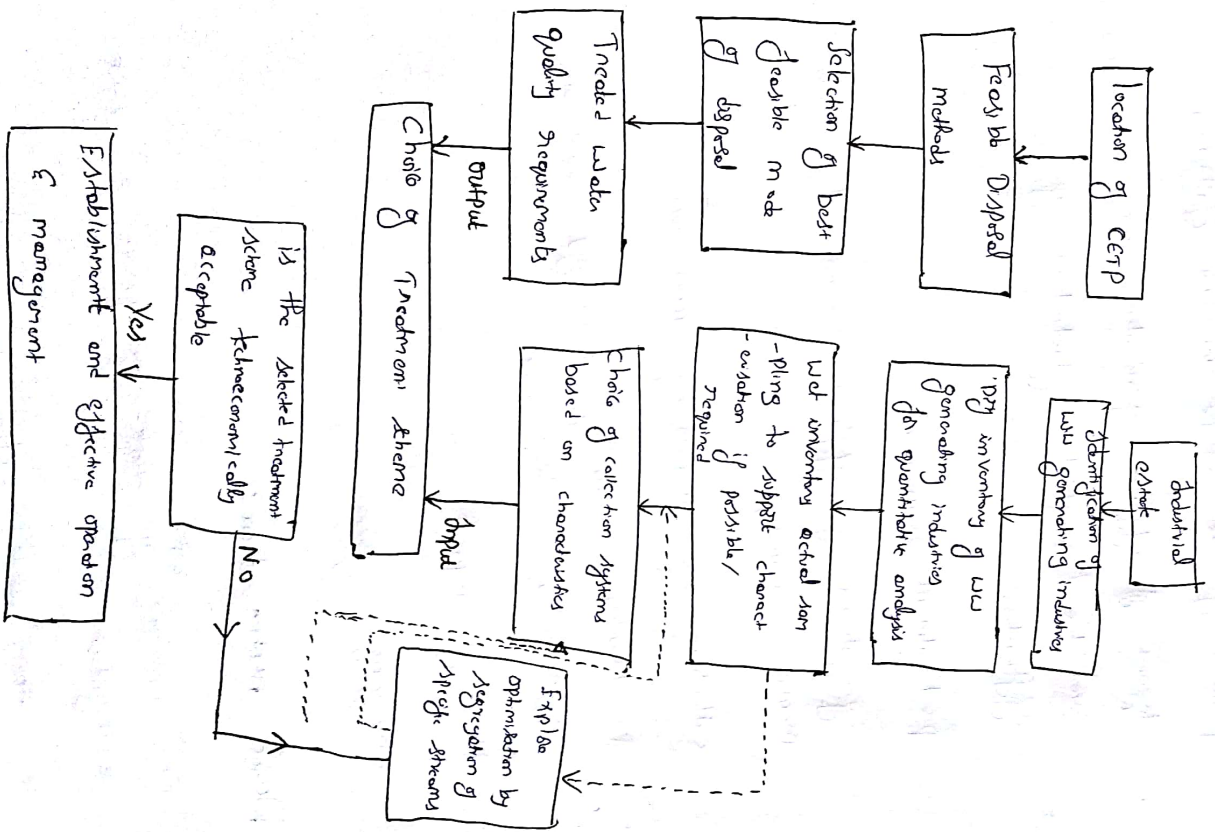 location of CETP
Feasible Disposal
methods
Selection of best
feasible mode
of disposal
Treated water
quality requirements
output
Choice of Treatment scheme
Industrial
estate
Identification of
WW generating industries
Dry inventory of WW
generating industries
for quantitative analysis
Wet inventory actual sam
-pling to support charact
-erisation if possible/
required
Choice of collection systems
based on characteristics
Input
is the selected treatment
scheme technoeconomically
acceptable
No
Yes
Explore
optimisation by
segregation of
specific streams
Establishment and effective operation
& management